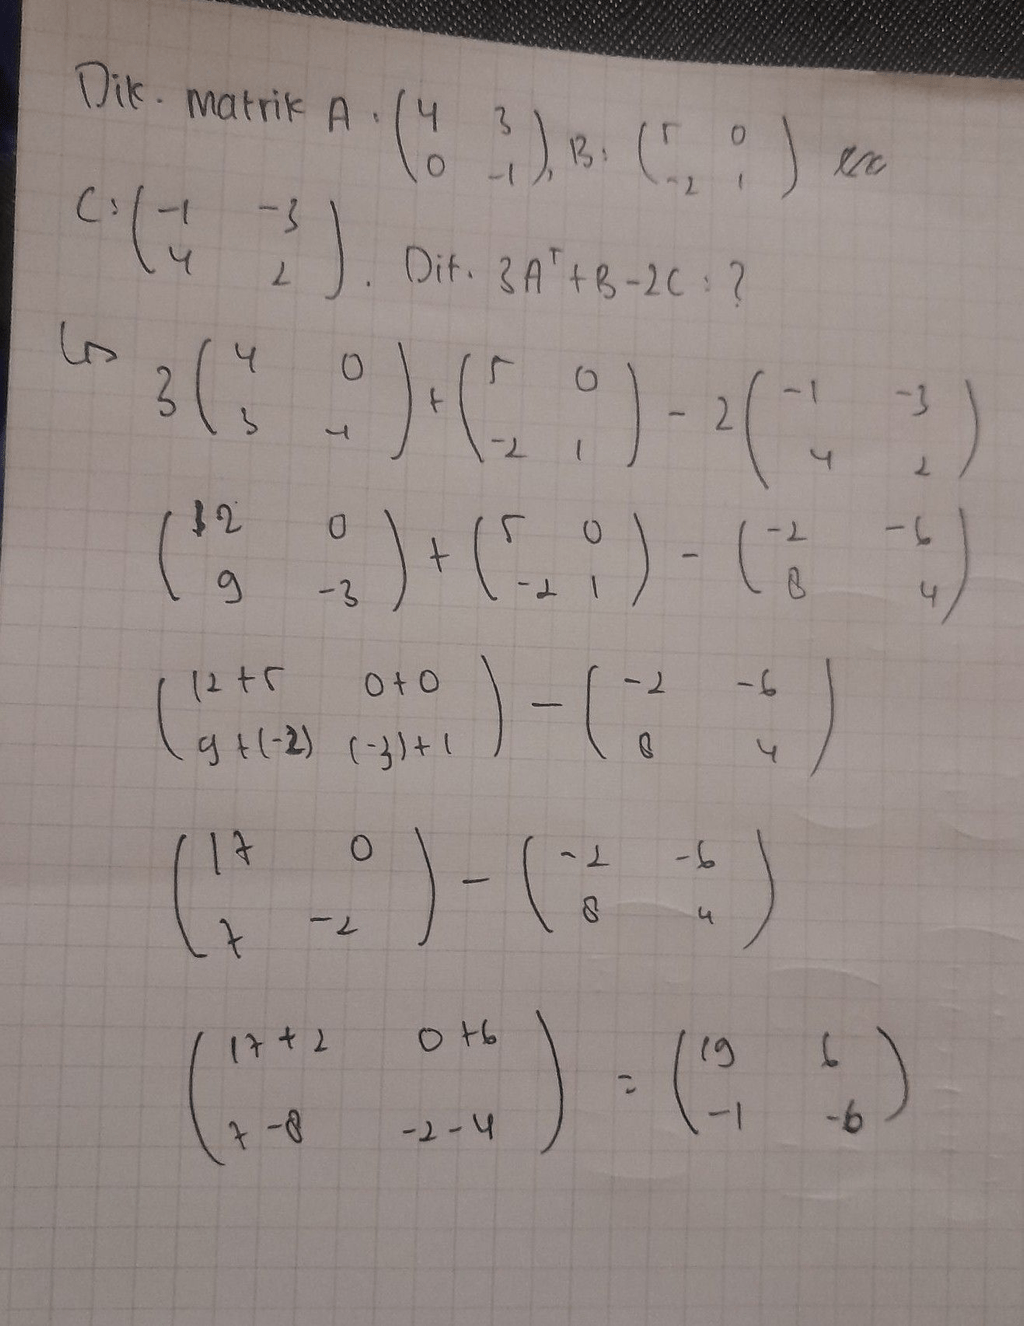 Dik. Matrik A = (4 3 / 0 -1), B = (5 0 / -2 1)
C = (-1 -3 / 4 2). Dit. 3Aᵀ + B - 2C = ?
↳ 3 (4 0 / 3 -1) + (5 0 / -2 1) - 2 (-1 -3 / 4 2)
(12 0 / 9 -3) + (5 0 / -2 1) - (-2 -6 / 8 4)
(12+5 0+0 / 9+(-2) (-3)+1) - (-2 -6 / 8 4)
(17 0 / 7 -2) - (-2 -6 / 8 4)
(17+2 0+6 / 7-8 -2-4) = (19 6 / -1 -6)